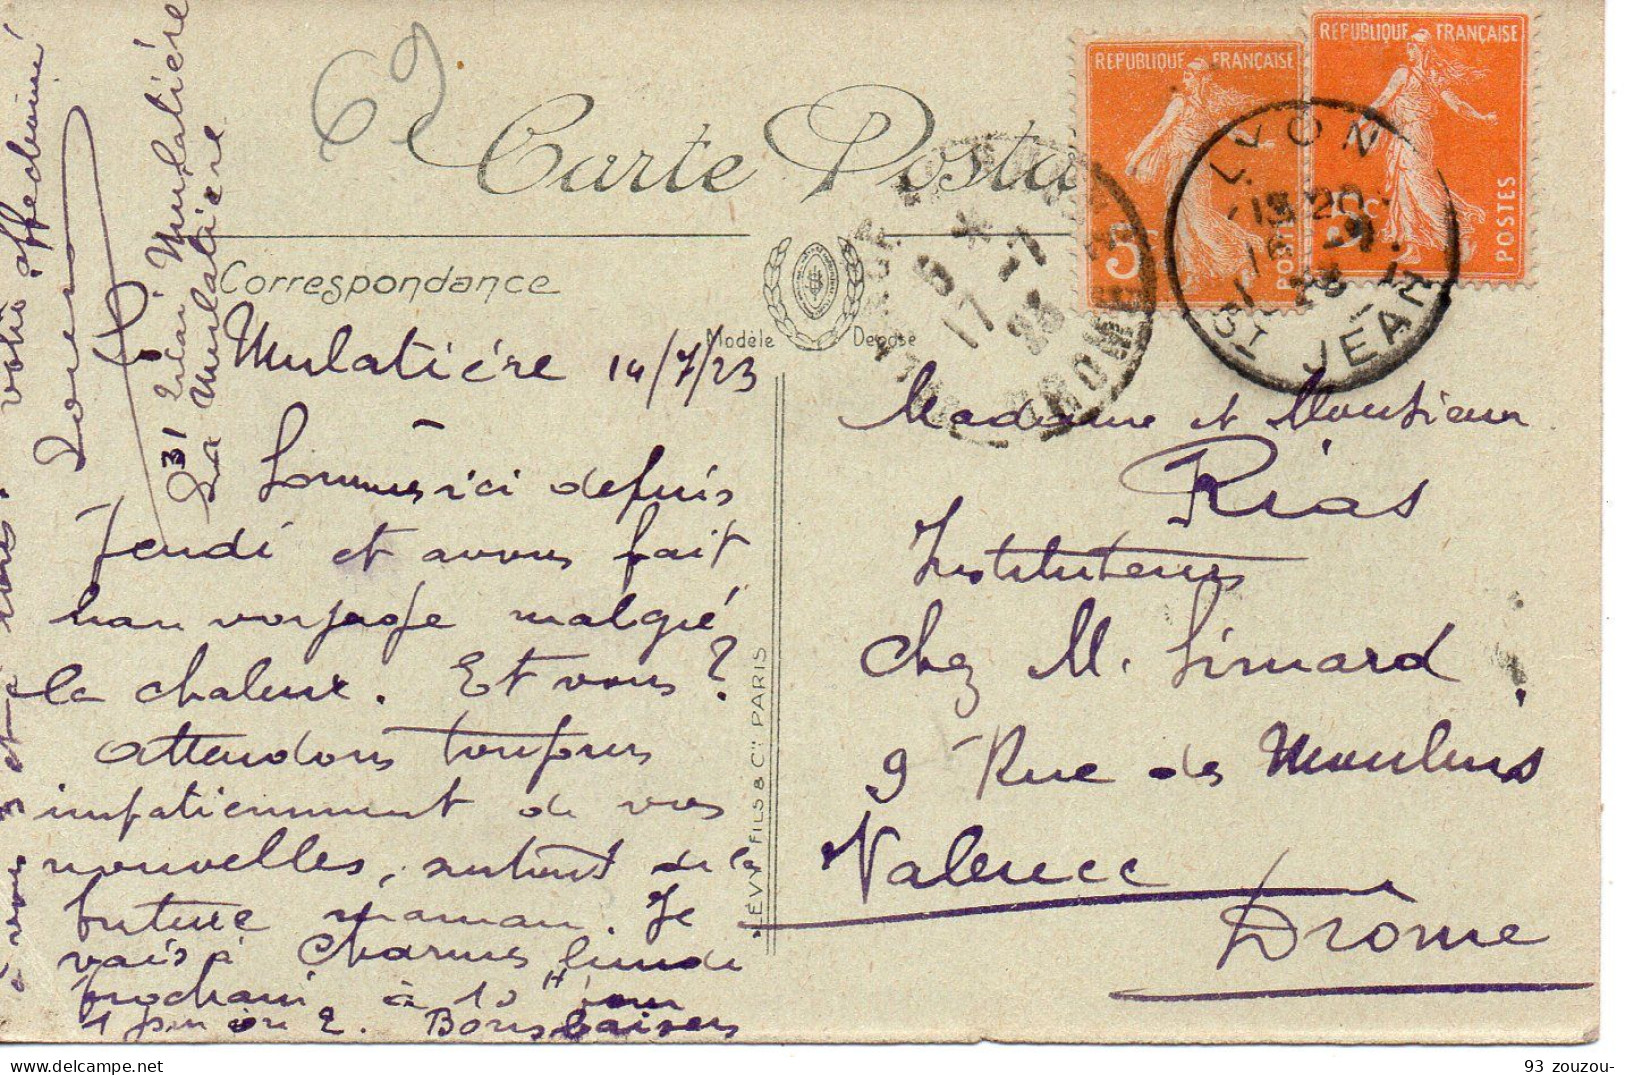 69
Carte Posta
RÉPUBLIQUE FRANÇAISE
5c
POSTES
RÉPUBLIQUE FRANÇAISE
5c
POSTES
LYON
ST JEAN
Correspondance
Modèle Déposé
Mulatière 14/7/23
Sommes ici depuis
Jeudi et avons fait
bon voyage malgré
la chaleur. Et vous?
Attendons toujours
impatiemment de vos
nouvelles, surtout de la
future maman. Je
vais à Charmes lundi
prochain à 10 H pour
1 jour ou 2. Bons baisers
votre affectionné
31 quai Mulatière
La Mulatière
LÉVY FILS & Cie PARIS
Madame et Monsieur
Rias
Instituteurs
Chez M. Simard
9 Rue des Moulins
Valence
Drôme
93 zouzou-